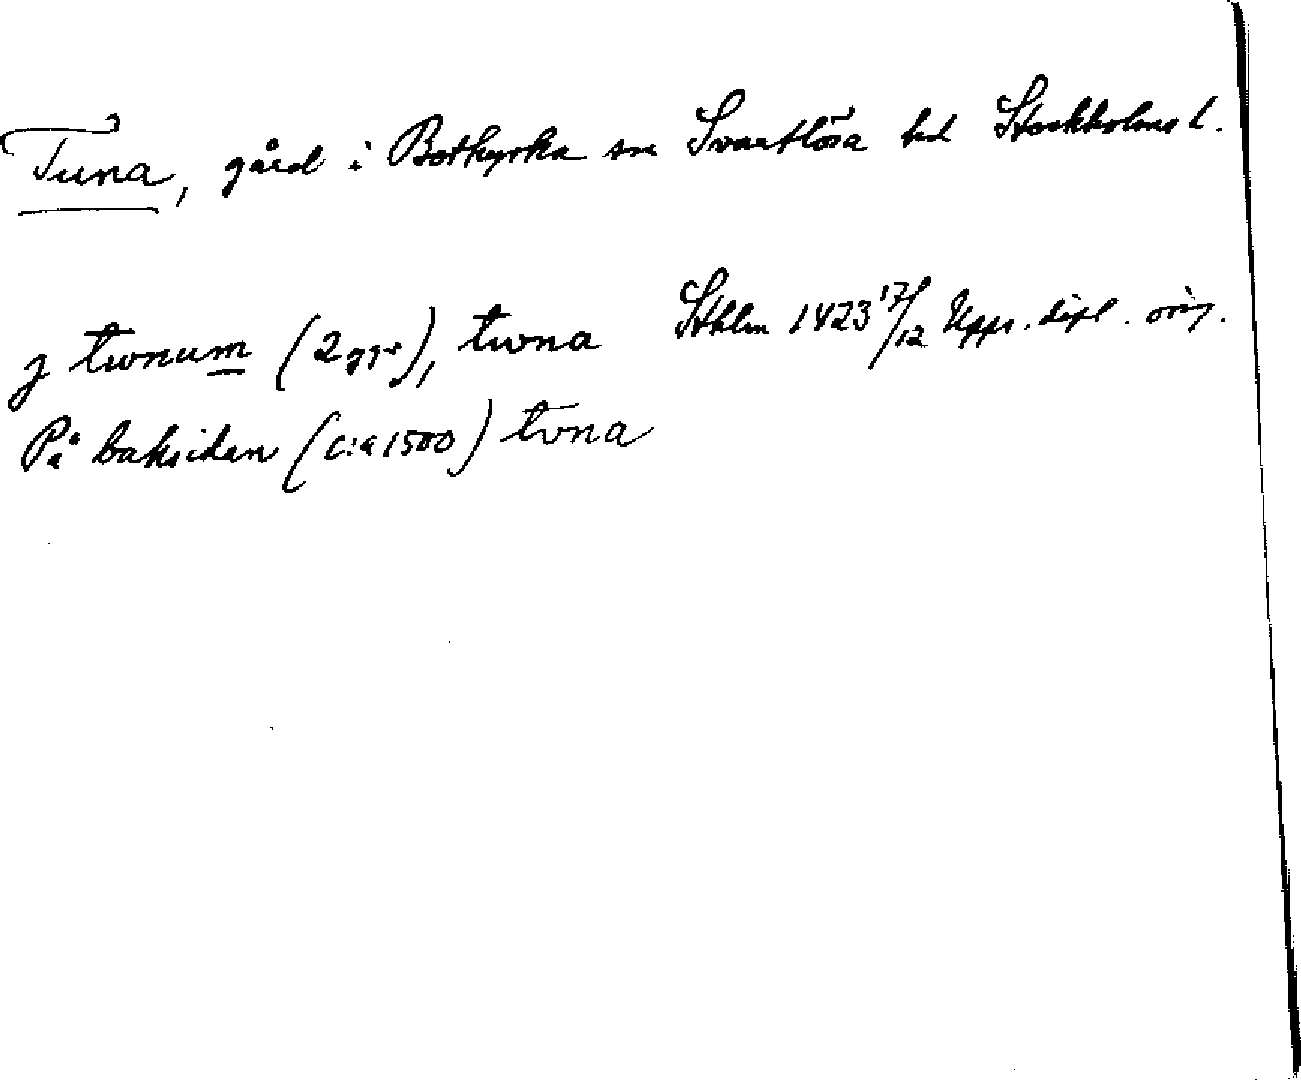 Tuna, gård i Botkyrka sn Svartlösa hd Stockholms l.
j twnum (2 ggr), twna Sthlm 1423 17/12 Upps. dipl. orig.
På baksidan (c:a 1500) tvna